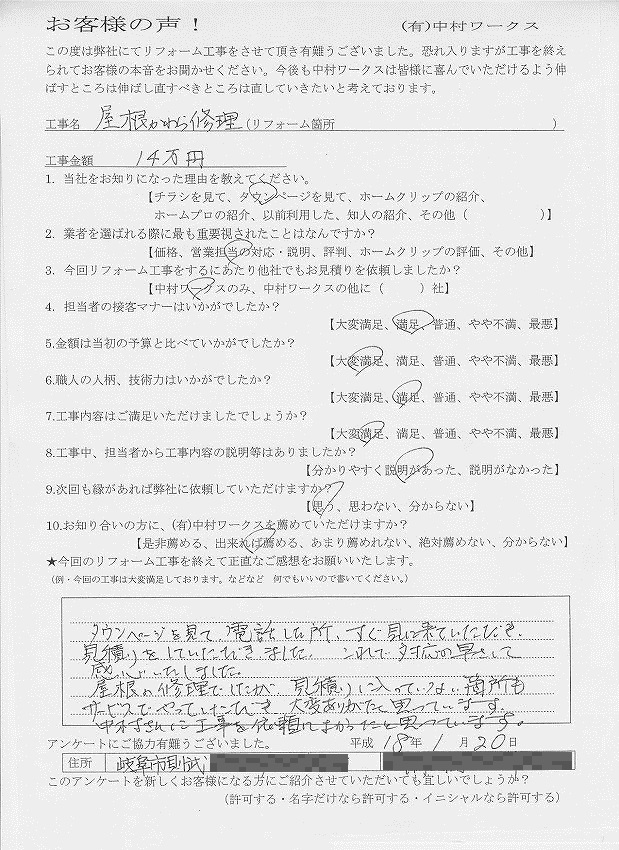 お客様の声！ (有)中村ワークス
この度は弊社にてリフォーム工事をさせて頂き有難うございました。恐れ入りますが工事を終え
られてお客様の本音をお聞かせください。今後も中村ワークスは皆様に喜んでいただけるよう伸
ばすところは伸ばし直すべきところは直していきたいと考えております。
工事名 屋根かわら修理 (リフォーム箇所 )
工事金額 14万円
1. 当社をお知りになった理由を教えてください。
【チラシを見て、タウンページを見て、ホームクリップの紹介、
ホームプロの紹介、以前利用した、知人の紹介、その他（ ）】
2. 業者を選ばれる際に最も重要視されたことはなんですか？
【価格、営業担当の対応・説明、評判、ホームクリップの評価、その他】
3. 今回リフォーム工事をするにあたり他社でもお見積りを依頼しましたか？
【中村ワークスのみ、中村ワークスの他に（ ）社】
4. 担当者の接客マナーはいかがでしたか？
【大変満足、満足、普通、やや不満、最悪】
5.金額は当初の予算と比べていかがでしたか？
【大変満足、満足、普通、やや不満、最悪】
6.職人の人柄、技術力はいかがでしたか？
【大変満足、満足、普通、やや不満、最悪】
7.工事内容はご満足いただけましたでしょうか？
【大変満足、満足、普通、やや不満、最悪】
8.工事中、担当者から工事内容の説明等はありましたか？
【分かりやすく説明があった、説明がなかった】
9.次回も縁があれば弊社に依頼していただけますか？
【思う、思わない、分からない】
10.お知り合いの方に、(有)中村ワークスを薦めていただけますか？
【是非薦める、出来れば薦める、あまり薦めれない、絶対薦めない、分からない】
★今回のリフォーム工事を終えて正直なご感想をお願いいたします。
（例・今回の工事は大変満足しております。などなど 何でもいいので書いてください。）
タウンページを見て、電話した所、すぐ見に来ていただき、
見積りをしていただきました。 これで対応の早さして
感心いたしました。
屋根の修理でしたが、見積りに入っていない箇所も
サービスでやっていただき、大変ありがたく思っています。
中村さんに工事を依頼してよかったと思っています。
アンケートにご協力有難うございました。 平成 18年 1月 20日
住所 岐阜市則武
このアンケートを新しくお客様になる方にご紹介させていただいても宜しいでしょうか？
（許可する・名字だけなら許可する・イニシャルなら許可する）